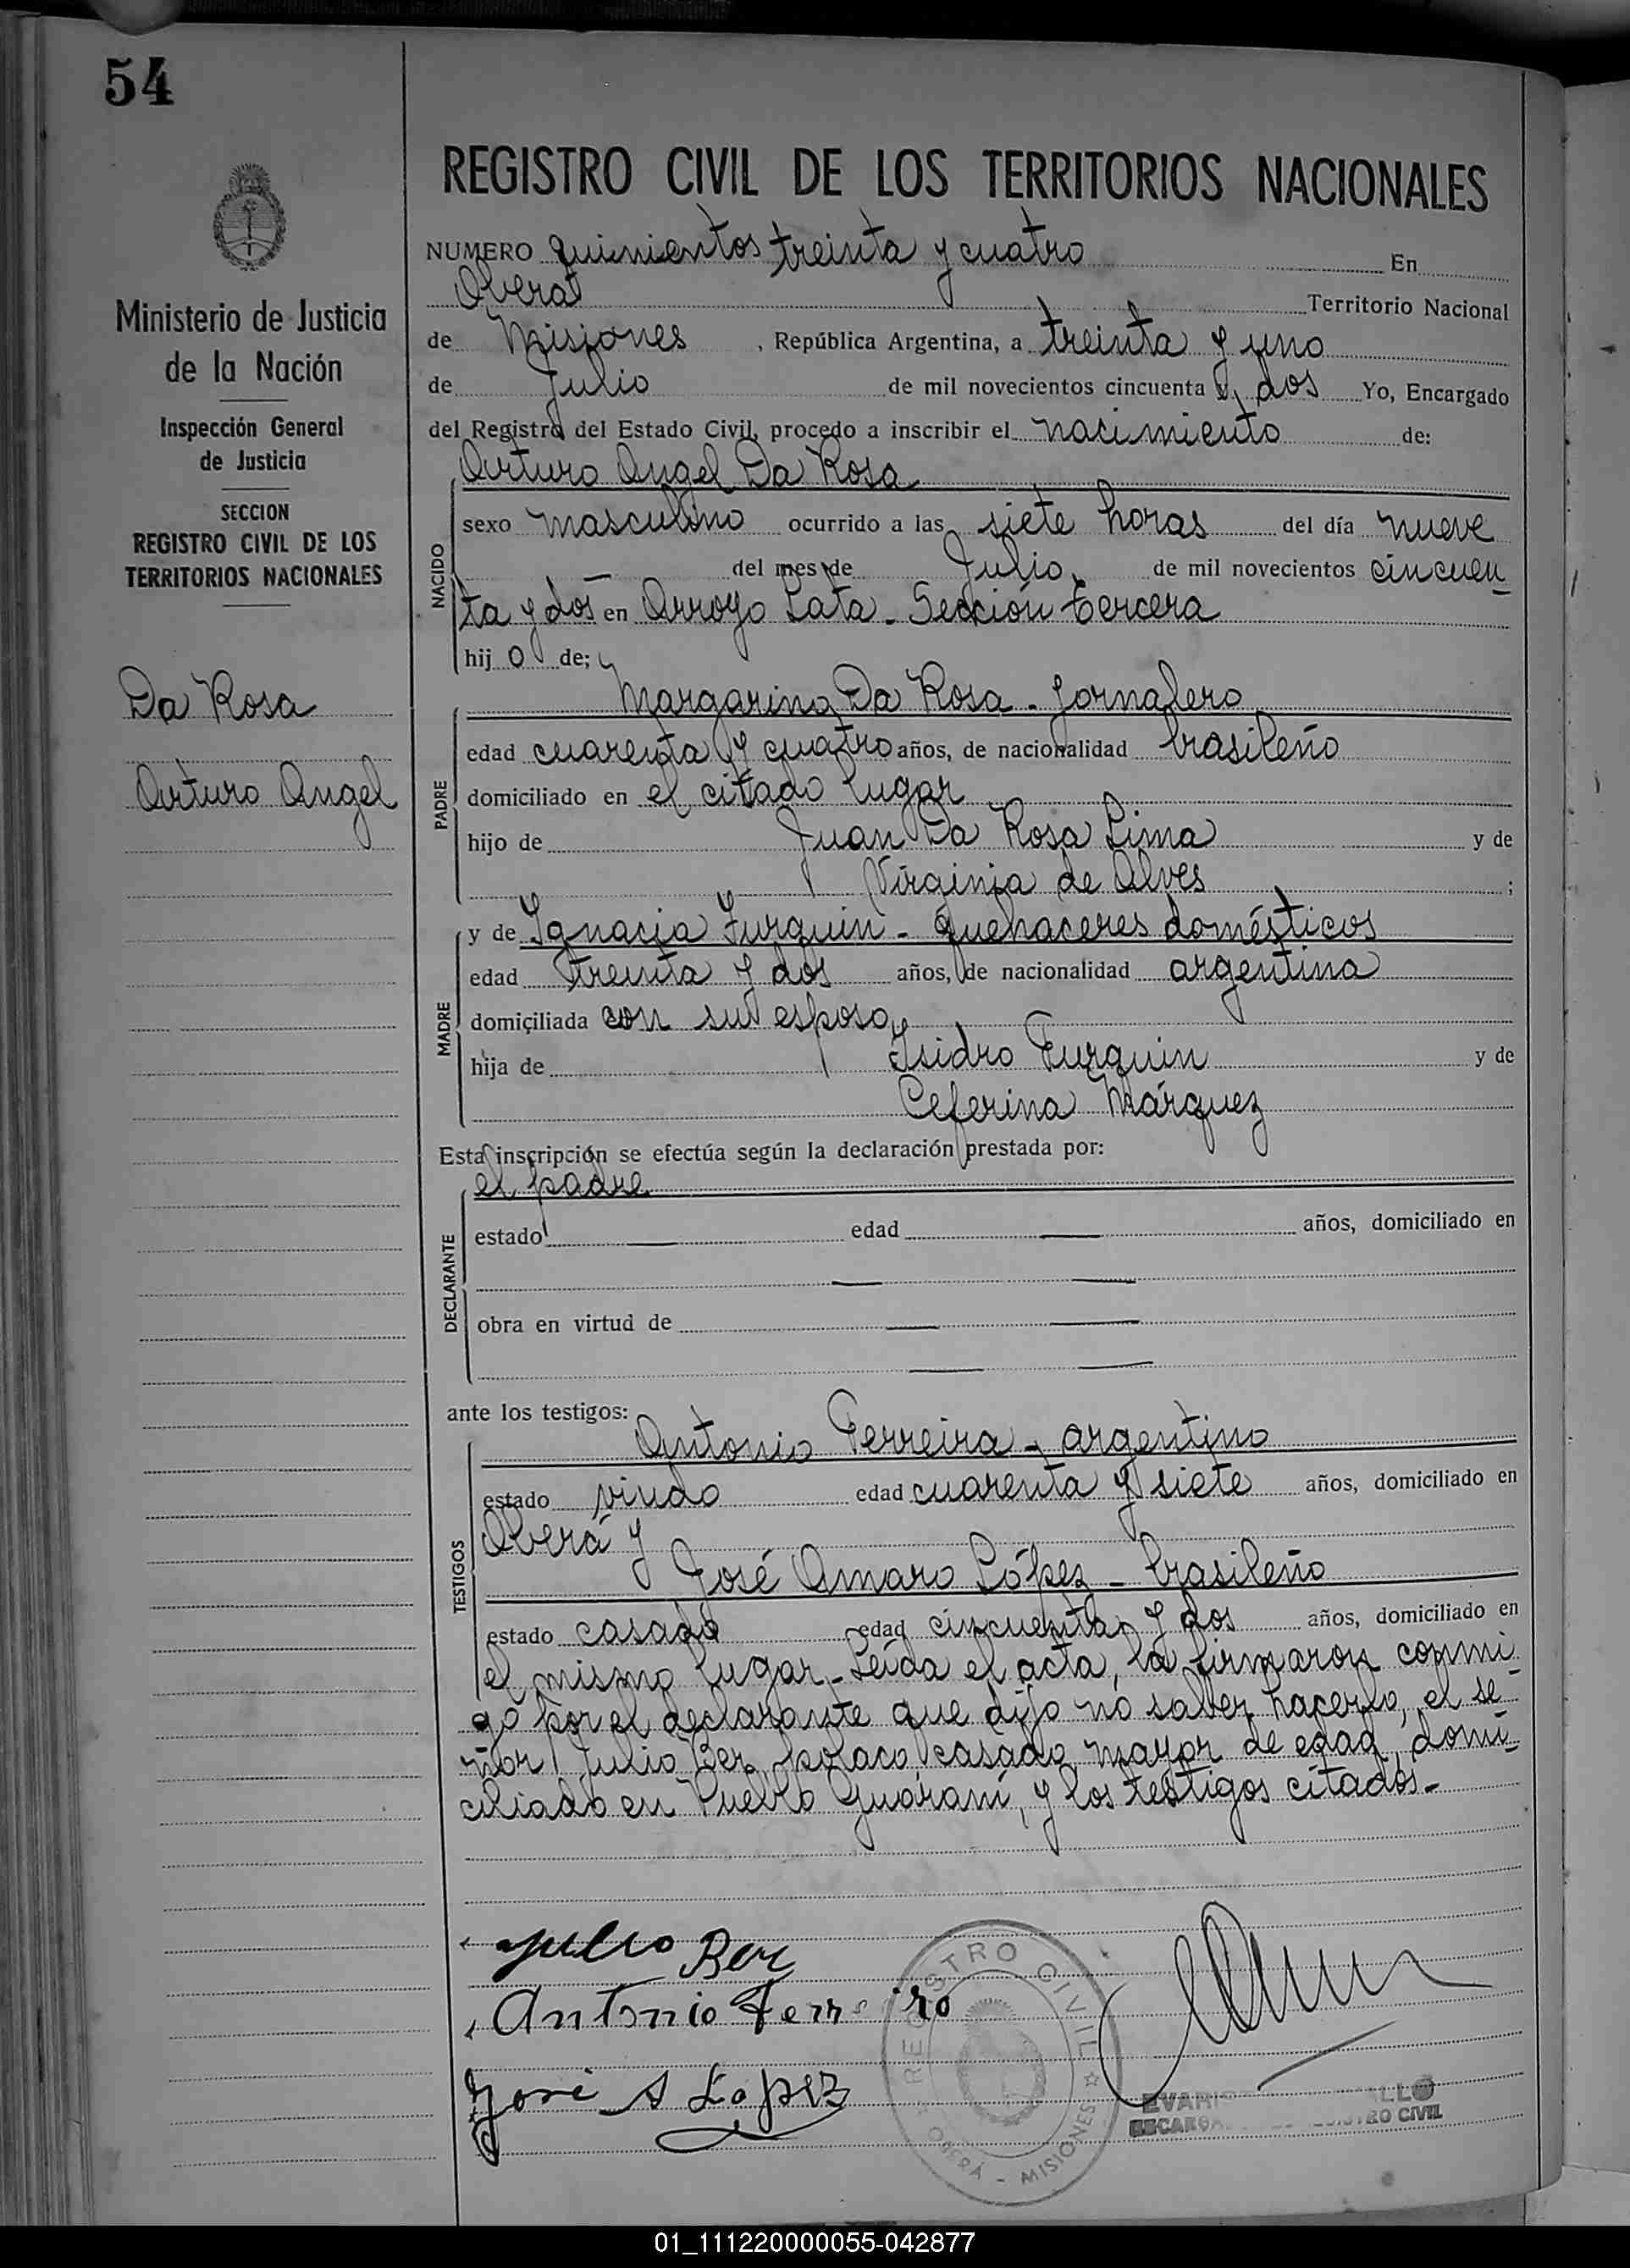 54
REGISTRO CIVIL DE LOS TERRITORIOS NACIONALES
Ministerio de Justicia
de la Nación
Inspección General
de Justicia
SECCION
REGISTRO CIVIL DE LOS
TERRITORIOS NACIONALES
Da Rosa
Arturo Angel
NUMERO quinientos treinta y cuatro En
Oberá Territorio Nacional
de Misiones, República Argentina, a treinta y uno
de Julio de mil novecientos cincuenta y dos Yo, Encargado
del Registro del Estado Civil, procedo a inscribir el nacimiento de:
Arturo Angel Da Rosa
NACIDO
sexo masculino ocurrido a las siete horas del día nueve
— del mes de Julio de mil novecientos cincuen-
ta y dos en Arroyo Lata - Sección tercera
hijo de;
PADRE
Margarino Da Rosa - Jornalero
edad cuarenta y cuatro años, de nacionalidad brasileño
domiciliado en el citado lugar
hijo de Juan Da Rosa Lima y de
Virginia de Alves ;
MADRE
y de Ignacia Furquin - quehaceres domésticos
edad treinta y dos años, de nacionalidad argentina
domiciliada con su esposo
hija de Isidro Furquin y de
Ceferina Márquez
Esta inscripción se efectúa según la declaración prestada por:
el padre
DECLARANTE
estado — edad — años, domiciliado en
— —
obra en virtud de — —
— —
ante los testigos:
TESTIGOS
Antonio Ferreira - argentino
estado viudo edad cuarenta y siete años, domiciliado en
Oberá y
José Amaro López - brasileño
estado casado edad cincuenta y dos años, domiciliado en
el mismo lugar - Leída el acta, la firmaron conmi-
go por el declarante que dijo no saber hacerlo, el se-
ñor Julio Ber, polaco, casado, mayor de edad, domi-
ciliado en Pueblo Guaraní, y los testigos citados.-
Julio Ber
Antonio
José A Lopez
REGISTRO CIVIL
OBERÁ - MISIONES
CIVIL
01_111220000055-042877